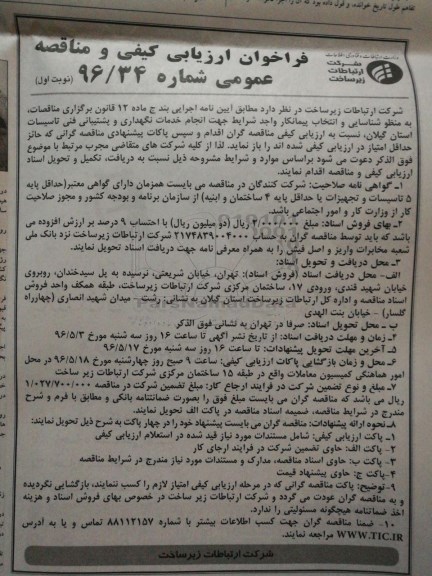 شرکت
ارتباطات
زیرساخت
فراخوان ارزیابی کیفی و مناقصه
عمومی شماره ۹۶/۳۴ (نوبت اول)
شرکت ارتباطات زیرساخت در نظر دارد مطابق آیین نامه اجرایی بند ج ماده ۱۲ قانون برگزاری مناقصات،
به منظو شناسایی و انتخاب پیمانکار واجد شرایط جهت انجام خدمات نگهداری و پشتیبانی فنی تاسیسات
استان گیلان، نسبت به ارزیابی کیفی مناقصه گران اقدام و سپس پاکات پیشنهادی مناقصه گرانی که حائز
حداقل امتیاز در ارزیابی کیفی شده اند را باز نماید. لذا از کلیه شرکت های متقاضی مجرب مرتبط با موضوع
فوق الذکر دعوت می شود براساس موارد و شرایط مشروحه ذیل نسبت به دریافت، تکمیل و تحویل اسناد
ارزیابی کیفی و مناقصه اقدام نمایند.
۱ـ گواهی نامه صلاحیت: شرکت کنندگان در مناقصه می بایست همزمان دارای گواهی معتبر(حداقل پایه
۵ تاسیسات و تجهیزات یا حداقل پایه ۴ ساختمان و ابنیه) از سازمان برنامه و بودجه کشور و مجوز صلاحیت
کار از وزارت کار و امور اجتماعی باشد.
۲ـ بهای فروش اسناد: مبلغ ۲/۰۰۰/۰۰۰ ریال (دو میلیون ریال) با احتساب ۹ درصد بر ارزش افزوده می
باشد که باید توسط مناقصه گران به حساب ۲۱۷۴۸۳۹۰۰۴۰۰۰ شرکت ارتباطات زیرساخت نزد بانک ملی
شعبه مخابرات واریز و اصل فیش را به همراه معرفی نامه جهت دریافت اسناد تحویل نمایند.
۳ـ محل دریافت و تحویل اسناد:
الف- محل دریافت اسناد (فروش اسناد): تهران، خیابان شریعتی، نرسیده به پل سیدخندان، روبروی
خیابان شهید قندی، ورودی ۱۷، ساختمان مرکزی شرکت ارتباطات زیرساخت، طبقه همکف واحد فروش
اسناد مناقصه و اداره کل ارتباطات زیرساخت استان گیلان به نشانی: رشت - میدان شهید انصاری (چهارراه
گلسار) - خیابان بنت الهدی
ب ـ محل تحویل اسناد: صرفا در تهران به نشانی فوق الذکر
۴ـ زمان و مهلت دریافت اسناد: از تاریخ نشر آگهی تا ساعت ۱۶ روز سه شنبه مورخ ۹۶/۵/۳
۵ـ آخرین مهلت تحویل پیشنهادات: تا ساعت ۱۶ روز سه شنبه مورخ ۹۶/۵/۱۷
۶ـ محل و زمان بازگشایی پاکات ارزیابی کیفی: ساعت ۹ صبح روز چهارشنبه مورخ ۹۶/۵/۱۸ در محل
امور هماهنگی کمیسیون معاملات واقع در طبقه ۱۵ ساختمان مرکزی شرکت ارتباطات زیر ساخت
۷ـ مبلغ و نوع تضمین شرکت در فرایند ارجاع کار: مبلغ تضمین شرکت در مناقصه ۱/۰۲۷/۷۰۰/۰۰۰
ریال می باشد که مناقصه گران می بایست مبلغ فوق را بصورت ضمانتنامه بانکی و مطابق با فرم و شرح
مندرج در شرایط مناقصه، ضمیمه اسناد مناقصه در پاکت الف تحویل نمایند.
۸ـ نحوه ارائه پیشنهادات: مناقصه گران می بایست پیشنهاد خود را در چهار پاکت به شرح ذیل تحویل نمایند:
۱ـ پاکت ارزیابی کیفی: شامل مستندات مورد نیاز قید شده در استعلام ارزیابی کیفی
۲ـ پاکت الف: حاوی تضمین شرکت در فرایند ارجاع کار
۳ـ پاکت ب: حاوی اسناد مناقصه، مدارک و مستندات مورد نیاز مندرج در شرایط مناقصه
۴ـ پاکت ج: حاوی پیشنهاد قیمت
۹ـ توضیح: پاکت مناقصه گرانی که در مرحله ارزیابی کیفی امتیاز لازم را کسب ننمایند، بازگشایی نگردیده
و به مناقصه گران عودت می گردد و شرکت ارتباطات زیر ساخت در خصوص بهای فروش اسناد و هزینه
اخذ ضمانتنامه هیچگونه مسئولیتی را ندارد.
۱۰- ضمنا مناقصه گران جهت کسب اطلاعات بیشتر با شماره ۸۸۱۱۲۱۵۷ تماس و یا به آدرس
WWW.TIC.IR مراجعه نمایند.
شرکت ارتباطات زیرساخت